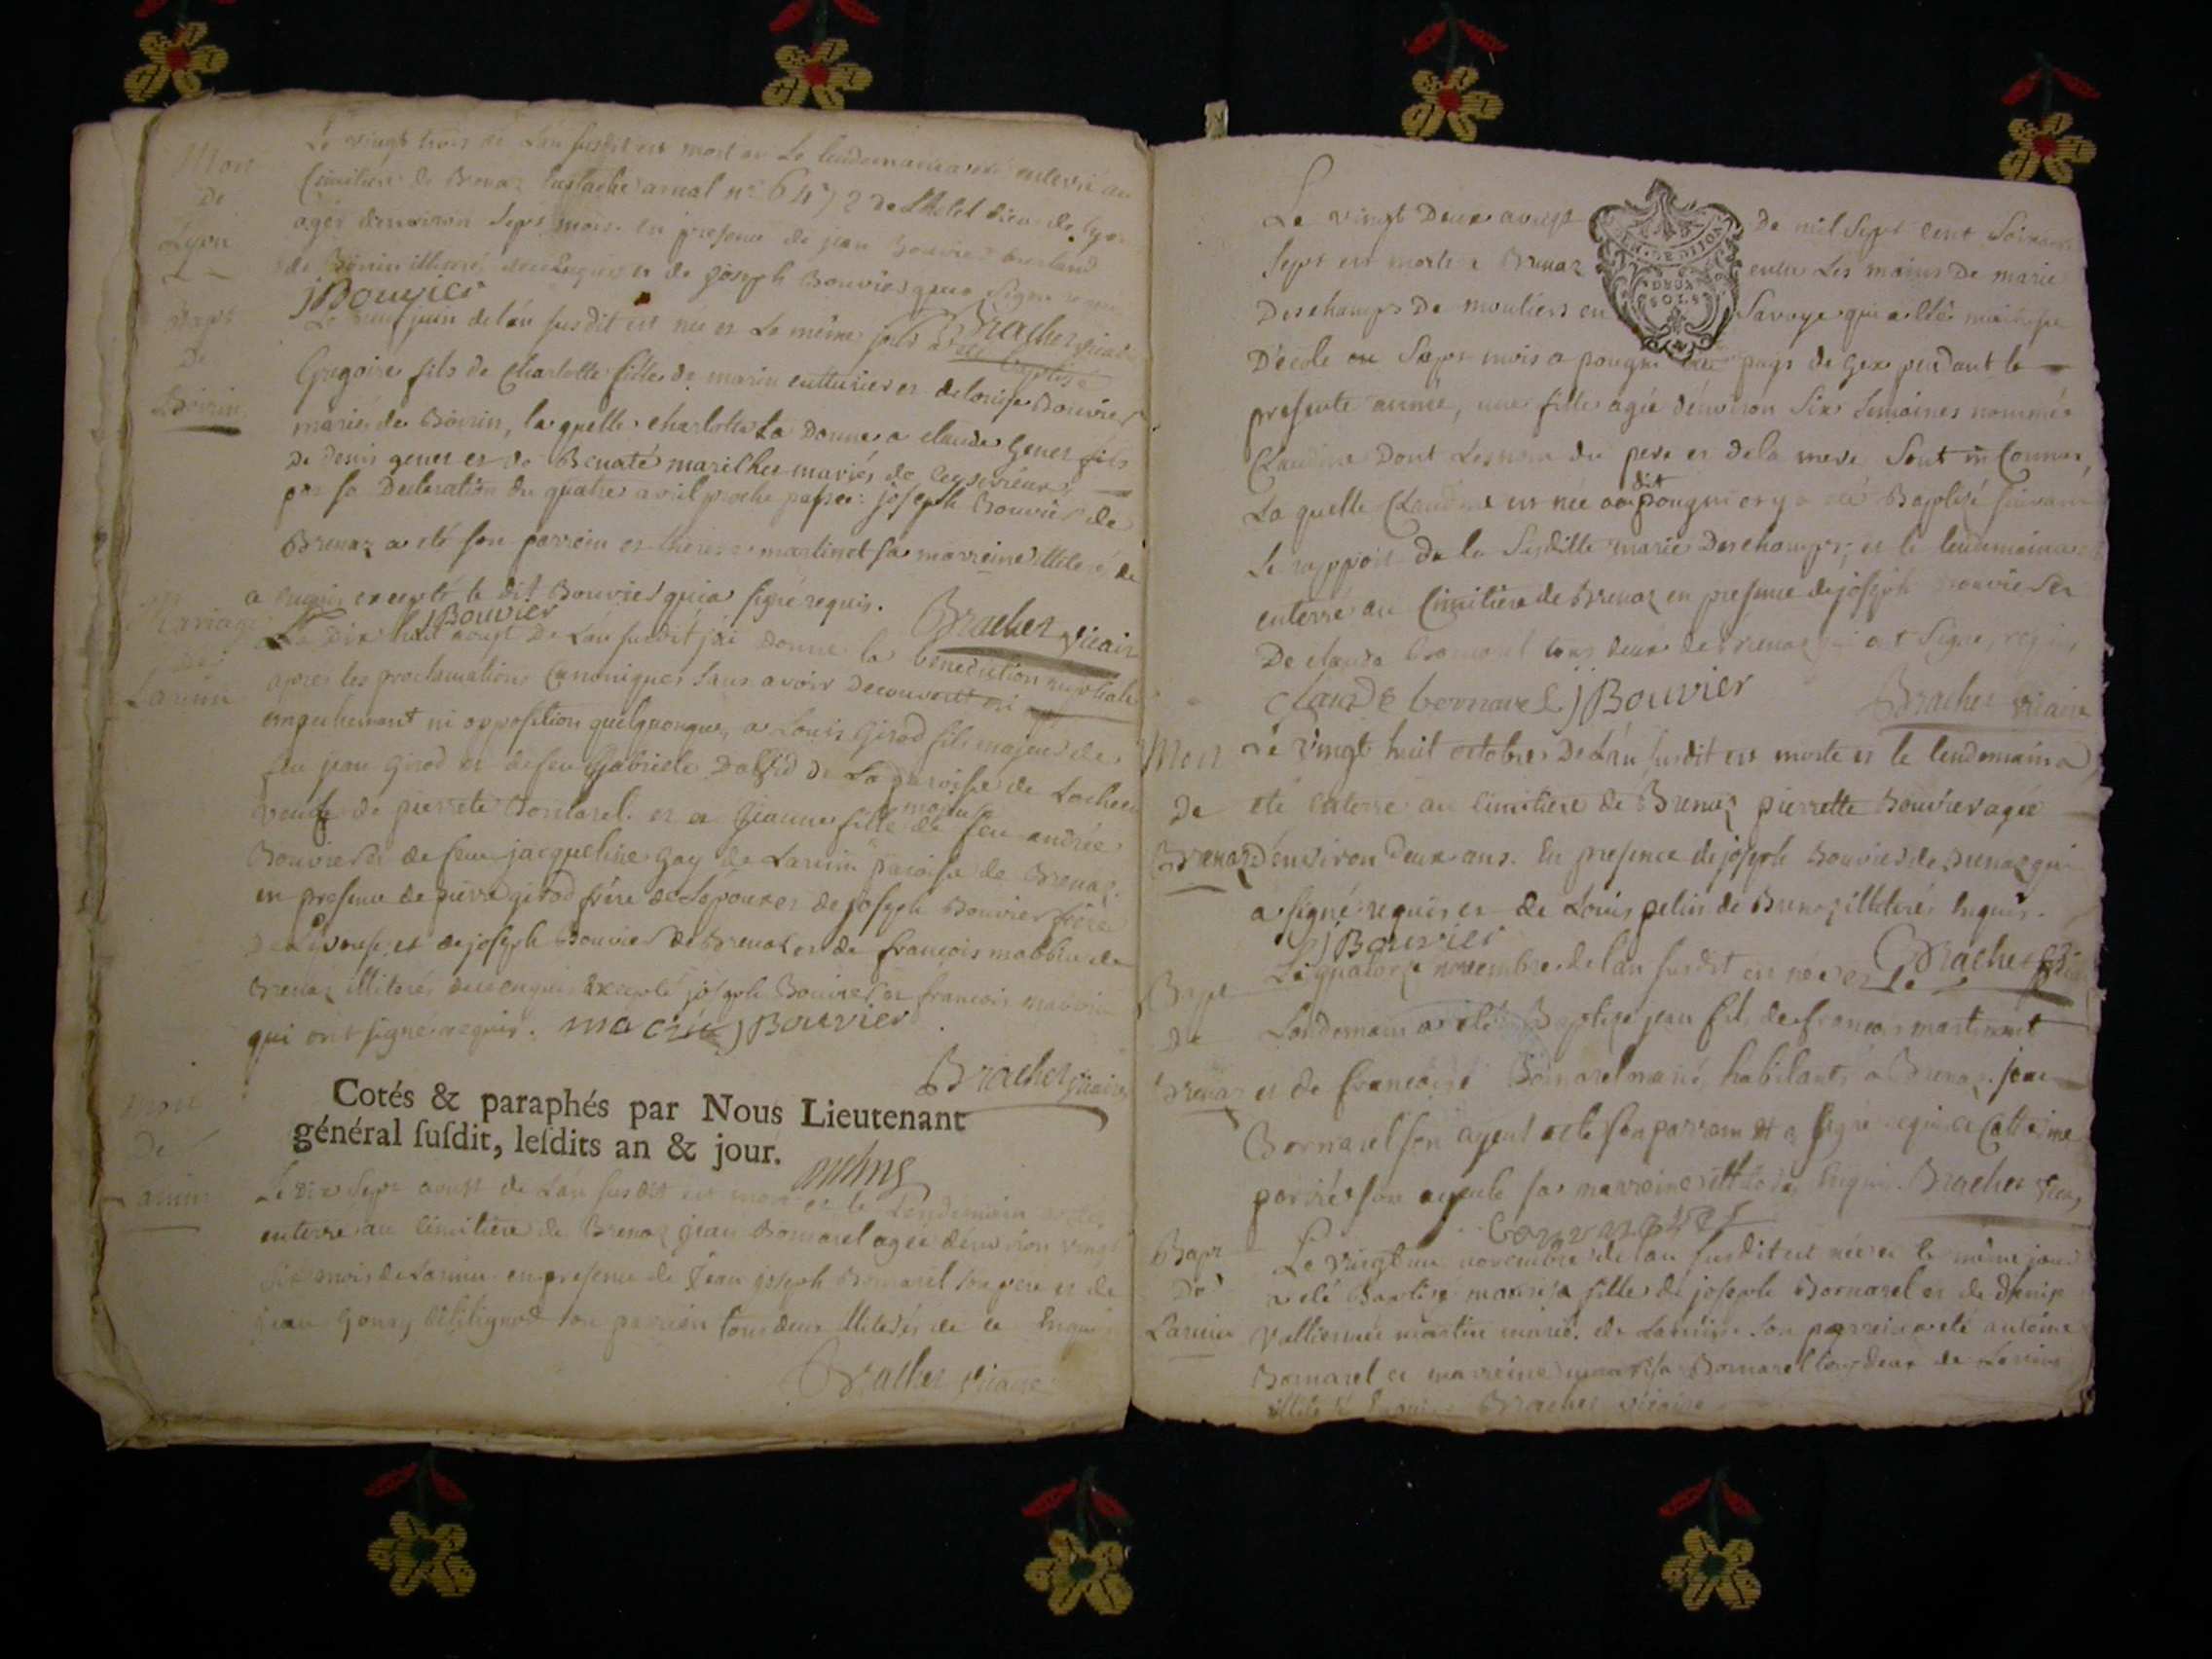 Mort
De
Lyon
Le vingt trois de L'an susdit est mort et Le lendemain a été enterré au
Cimitiere de Brenaz Eustache arnal n° 6472 de L'hotel dieu de lyon
agés d'environ Sept mois. en presence de jean Bouvier
de Boirin illiteré et de joseph Bouvier qui a signé requis
jBouvier
Bracher vicaire
Bapt
De
Boirin
Le neuf juin de l'an susdit est née et Le même jour a été baptisé
Gregoire fils de Charlotte fille de marin cutturier et de louise Bouvier
mariés de Boirin, la quelle charlotte La Donne a claude Genet fils
De Denis genet et de Benoite marilhes mariés de
par sa Declaration du quatre avril proche passé: joseph Bouvier de
Brenaz a eté son parrein et therese martinet sa marreine illiteré de
ce Enquis excepté le dit Bouvier qui a signé requis.
jBouvier
Bracher vicaire
Mariage
de
Larnin
Le Dix huit aoust De L'an susdit j'ai Donné la benediction nuptiale
apres les proclamations Canoniques Sans avoir Decouvert ni
empechement ni opposition quelquonque, a Louis Girod fils majeur de
feu jean Girod et de feu Gabriele de La paroisse de Lochieu
veuf de pierrete Bornarel. et a Jeanne fille majeure de feu andrée
Bouvier et de feue jacqueline Gay de Larnin paroisse de Brenaz.
en presence de pierre girod frère de L'epoux et de joseph Bouvier frère
De L'epouse, et de joseph Bouvier de Brenaz et de françois mabbin de
Brenaz illiterés de ce enquis Excepté joseph Bouvier et francois
qui ont signé requis. jBouvier
Bracher vicaire
Cotés & paraphés par Nous Lieutenant
général susdit, lesdits an & jour.
Mort
De
Larnin
Le Dix Sept aoust de L'an susdit est mort et le Lendemain a été
enterré au cimitiere de Brenaz jean Bornarel agée d'environ vingt
Six mois de Larnin en presence de Jean joseph Bornarel son pere et de
jean Gonay son parrein tous deux illiterés de ce Enquis
Bracher vicaire
GEN. DE DIJON
DEUX
SOLS
Le vingt Deux aoust De mil Sept cent Soixante
Sept est morte a Brenaz entre Les mains De marie
Deschamps De moutiers en Savoye qui a été maitresse
D'ecole Sept mois a pougni au pays de Gex pendant la
presente année, une fille agée d'environ Six Semaines nommée
Claudine Dont Les nom du pere et de la mere Sont inConnus,
La quelle Claudine est née au dit pougni et y a été Baptisé suivant
Le rapport De la Susditte marie Deschamps, et le lendemain a été
enterré au Cimitiere de Brenaz en presence de joseph Bouvier et
De claude bornarel tous deux de Brenaz qui ont Signé, requis
claude bornarel jBouvier
Bracher vicaire
Mort
De
Brenaz
Le vingt huit octobre De L'an susdit est morte et le lendemain a
eté enterré au cimitiere de Brenaz pierrette Bouvier agée
d'environ Deux ans. En presence de joseph Bouvier de Brenaz qui
a signé requis et de Louis pelin de Brenaz illiterés Enquis.
jBouvier
Bracher
Bapt
De
Brenaz
Le quatorze novembre de l'an susdit est née et Le
Lendemain a eté Baptisé jean fils de françois martinet
et de françoise Bornarel mariés habitants a Brenaz. jean
Bornarel son ayeul a eté son parrain et a signé requis et Catherine
son ayeule sa marreine illiterée Enquis. Bracher vicaire
bornarel
Bapt
De
Larnin
Le vingt un novembre de l'an susdit est née et le même jour
a eté Baptisé fille de joseph Bornarel et de Denise
martin mariés de Larnin. Son parrein a eté antoine
Bornarel et marreine Bornarel tous deux de Larnin
illiterés Enquis. Bracher vicaire